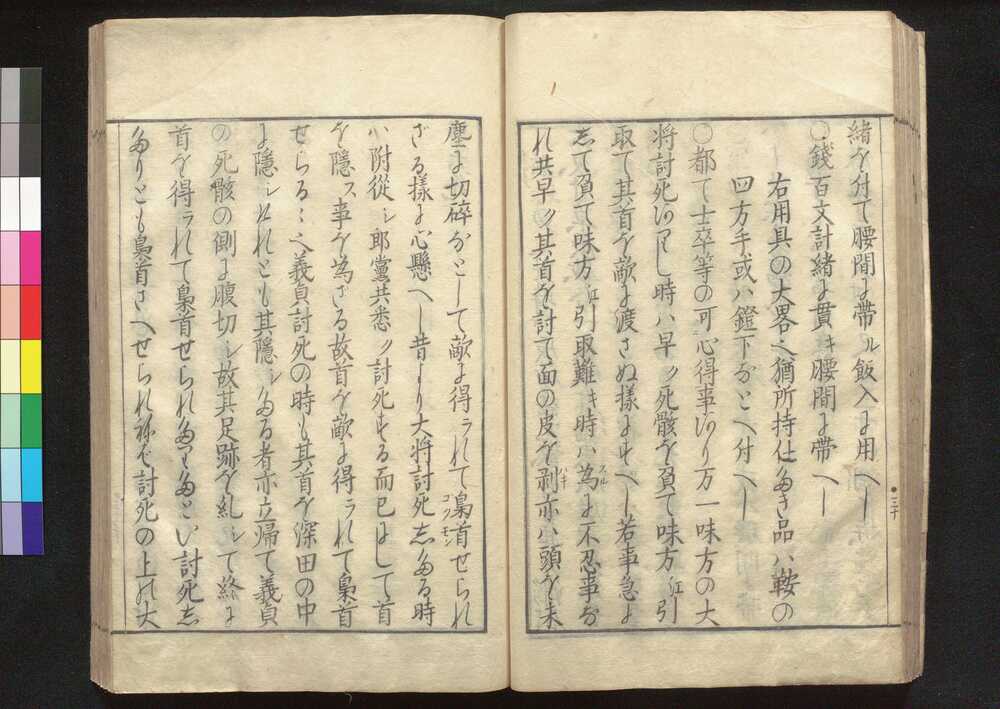 緒を付て腰間に帯ル飯入に用へし
○錢百文計緒に貫キ腰間に帯へし
右用具の大畧也猶所持仕たき品ハ鞍の
四方手或ハ鐙下などへ付へし
○都て士卒等の可心得事あり万一味方の大
将討死ありし時ハ早ク死骸を負て味方江引
取て其首を敵に渡さぬ様にすへし若事急に
して負て味方江引取難キ時ハ為に不忍事な
れ共早ク其首を討て面の皮を剥亦ハ頭を末
塵に切碎などして敵に得ラれて梟首せられ
ざる様に心懸へし昔より大将討死したる時
ハ附從シ郎黨共悉ク討死する而已にして首
を隠ス事を為ざる故首を敵に得ラれて梟首
せらるゝ也義貞討死の時も其首を深田の中
に隠シけれとも其隠シたる者亦立帰て義貞
の死骸の側に腹切シ故其足跡を糺シて終に
首を得ラれて梟首せられたりたとい討死し
たりとも梟首さへせられねば討死の上の大
スル
ハキ
コクモン
三十